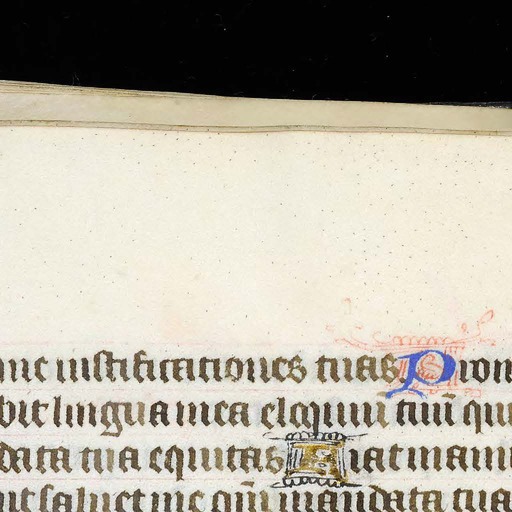 me iustificationes tuas. Pron
bit lingua mea eloquiu tuu qu
data tua equitas Fiat manu
ut saluet me qm mandata tua